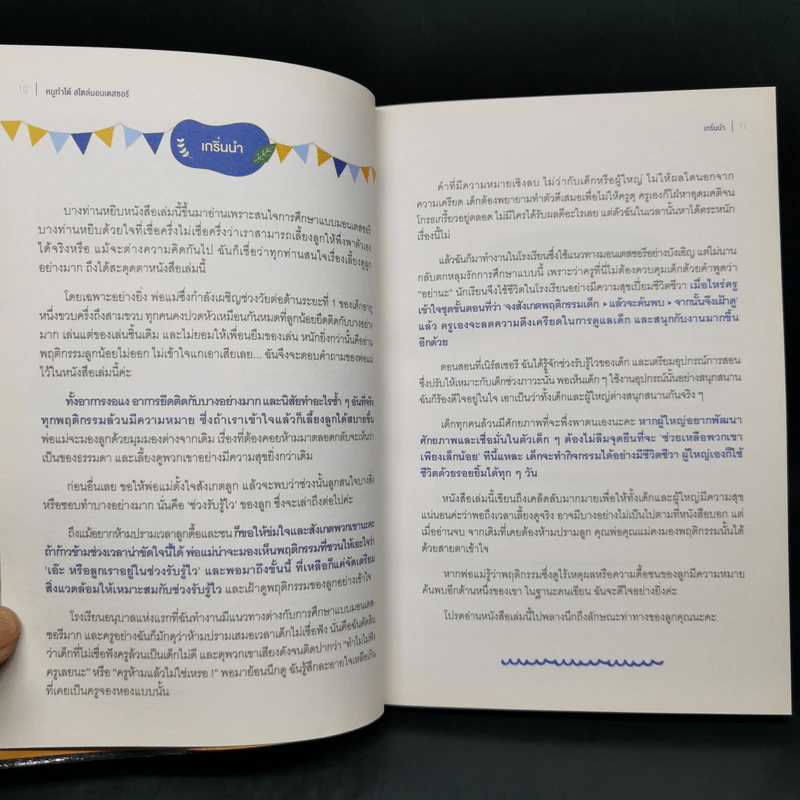 10 | หนูทำได้ สไตล์มอนเตสซอรี
เกริ่นนำ
บางท่านหยิบหนังสือเล่มนี้ขึ้นมาอ่านเพราะสนใจการศึกษาแบบมอนเตสซอรี
บางท่านหยิบด้วยใจที่เชื่อครึ่งไม่เชื่อครึ่งว่าเราสามารถเลี้ยงลูกให้พึ่งพาตัวเอง
ได้จริงหรือ แม้จะต่างความคิดกันไป ฉันก็เชื่อว่าทุกท่านสนใจเรื่องเลี้ยงดูลูก
อย่างมาก ถึงได้สะดุดตาหนังสือเล่มนี้
โดยเฉพาะอย่างยิ่ง พ่อแม่ซึ่งกำลังเผชิญช่วงวัยต่อต้านระยะที่ 1 ของเด็กอายุ
หนึ่งขวบครึ่งถึงสามขวบ ทุกคนคงปวดหัวเหมือนกันหมดที่ลูกน้อยยึดติดกับบางอย่าง
มาก เล่นแต่ของเล่นชิ้นเดิม และไม่ยอมให้เพื่อนยืมของเล่น หนักยิ่งกว่านั้นคืออ่าน
พฤติกรรมลูกน้อยไม่ออก ไม่เข้าใจแกเอาเสียเลย... ฉันจึงจะตอบคำถามของพ่อแม่
ไว้ในหนังสือเล่มนี้ค่ะ
ทั้งอาการงอแง อาการยึดติดกับบางอย่างมาก และนิสัยทำอะไรซ้ำ ๆ อันที่จริง
ทุกพฤติกรรมล้วนมีความหมาย ซึ่งถ้าเราเข้าใจแล้วก็เลี้ยงลูกได้สบายขึ้น
พ่อแม่จะมองลูกด้วยมุมมองต่างจากเดิม เรื่องที่ต้องคอยห้ามมาตลอดกลับจะเห็นว่า
เป็นของธรรมดา และเลี้ยงดูพวกเขาอย่างมีความสุขยิ่งกว่าเดิม
ก่อนอื่นเลย ขอให้พ่อแม่ตั้งใจสังเกตลูก แล้วจะพบว่าช่วงนั้นลูกสนใจบางสิ่ง
หรือชอบทำบางอย่างมาก นั่นคือ 'ช่วงรับรู้ไว' ของลูก ซึ่งจะเล่าถึงต่อไปค่ะ
ถึงแม้อยากห้ามปรามเวลาลูกดื้อและซน ก็ขอให้ข่มใจและสังเกตพวกเขานะคะ
ถ้าก้าวข้ามช่วงเวลาน่าขัดใจนี้ได้ พ่อแม่น่าจะมองเห็นพฤติกรรมที่ชวนให้เอะใจว่า
'เอ๊ะ หรือลูกเราอยู่ในช่วงรับรู้ไว' และพอมาถึงขั้นนี้ ที่เหลือก็แค่จัดเตรียม
สิ่งแวดล้อมให้เหมาะสมกับช่วงรับรู้ไว และเฝ้าดูพฤติกรรมของลูกอย่างเข้าใจ
โรงเรียนอนุบาลแห่งแรกที่ฉันทำงานมีแนวทางต่างกับการศึกษาแบบมอนเตส-
ซอรีมาก และครูอย่างฉันก็มักดุว่าห้ามปรามเสมอเวลาเด็กไม่เชื่อฟัง นั่นคือฉันตัดสิน
ว่าเด็กที่ไม่เชื่อฟังครูล้วนเป็นเด็กไม่ดี และดุพวกเขาเสียงดังจนติดปากว่า "ทำไมไม่ฟัง
ครูเลยนะ" หรือ "ครูห้ามแล้วไม่ใช่เหรอ !" พอมาย้อนนึกดู ฉันรู้สึกละอายใจเหลือเกิน
ที่เคยเป็นครูจองหองแบบนั้น
เกริ่นนำ | 11
คำที่มีความหมายเชิงลบ ไม่ว่ากับเด็กหรือผู้ใหญ่ ไม่ให้ผลใดนอกจาก
ความเครียด เด็กต้องพยายามทำตัวดีเสมอเพื่อไม่ให้ครูดุ ครูเองก็ใฝ่หาอุดมคติจน
โกรธเกรี้ยวอยู่ตลอด ไม่มีใครได้รับผลดีอะไรเลย แต่ตัวฉันในเวลานั้นหาได้ตระหนัก
เรื่องนี้ไม่
แล้วฉันก็มาทำงานในโรงเรียนซึ่งใช้แนวทางมอนเตสซอรีอย่างบังเอิญ แต่ไม่นาน
กลับตกหลุมรักการศึกษาแบบนี้ เพราะว่าครูที่นี่ไม่ต้องควบคุมเด็กด้วยคำพูดว่า
"อย่านะ" นักเรียนจึงใช้ชีวิตในโรงเรียนอย่างมีความสุขเปี่ยมชีวิตชีวา เมื่อไหร่ครู
เข้าใจชุดขั้นตอนที่ว่า 'จงสังเกตพฤติกรรมเด็ก ▸ แล้วจะค้นพบ ▸ จากนั้นจึงเฝ้าดู'
แล้ว ครูเองจะลดความตึงเครียดในการดูแลเด็ก และสนุกกับงานมากขึ้น
อีกด้วย
ตอนสอนที่เนิร์สเซอรี ฉันได้รู้จักช่วงรับรู้ไวของเด็ก และเตรียมอุปกรณ์การสอน
ซึ่งปรับให้เหมาะกับเด็กช่วงภาวะนั้น พอเห็นเด็ก ๆ ใช้งานอุปกรณ์นั้นอย่างสนุกสนาน
ฉันก็ร้องดีใจอยู่ในใจ เอาเป็นว่าทั้งเด็กและผู้ใหญ่ต่างสนุกสนานกันจริง ๆ
เด็กทุกคนล้วนมีศักยภาพที่จะพึ่งพาตนเองนะคะ หากผู้ใหญ่อยากพัฒนา
ศักยภาพและเชื่อมั่นในตัวเด็ก ๆ ต้องไม่ลืมจุดยืนที่จะ 'ช่วยเหลือพวกเขา
เพียงเล็กน้อย' ทีนี้แหละ เด็กจะทำกิจกรรมได้อย่างมีชีวิตชีวา ผู้ใหญ่เองก็ใช้
ชีวิตด้วยรอยยิ้มได้ทุก ๆ วัน
หนังสือเล่มนี้เขียนถึงเคล็ดลับมากมายเพื่อให้ทั้งเด็กและผู้ใหญ่มีความสุข
แน่นอนค่ะว่าพอถึงเวลาเลี้ยงดูจริง อาจมีบางอย่างไม่เป็นไปตามที่หนังสือบอก แต่
เมื่ออ่านจบ จากเดิมที่เคยต้องห้ามปรามลูก คุณพ่อคุณแม่คงมองพฤติกรรมนั้นได้
ด้วยสายตาเข้าใจ
หากพ่อแม่รู้ว่าพฤติกรรมซึ่งดูไร้เหตุผลหรือความดื้อซนของลูกมีความหมาย
ค้นพบอีกด้านหนึ่งของเขา ในฐานะคนเขียน ฉันจะดีใจอย่างยิ่งค่ะ
โปรดอ่านหนังสือเล่มนี้ไปพลางนึกถึงลักษณะท่าทางของลูกคุณนะคะ